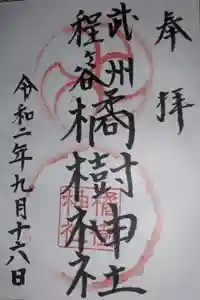 奉拝
武州
程ヶ谷
橘樹神社
令和二年九月十六日
橘樹
神社